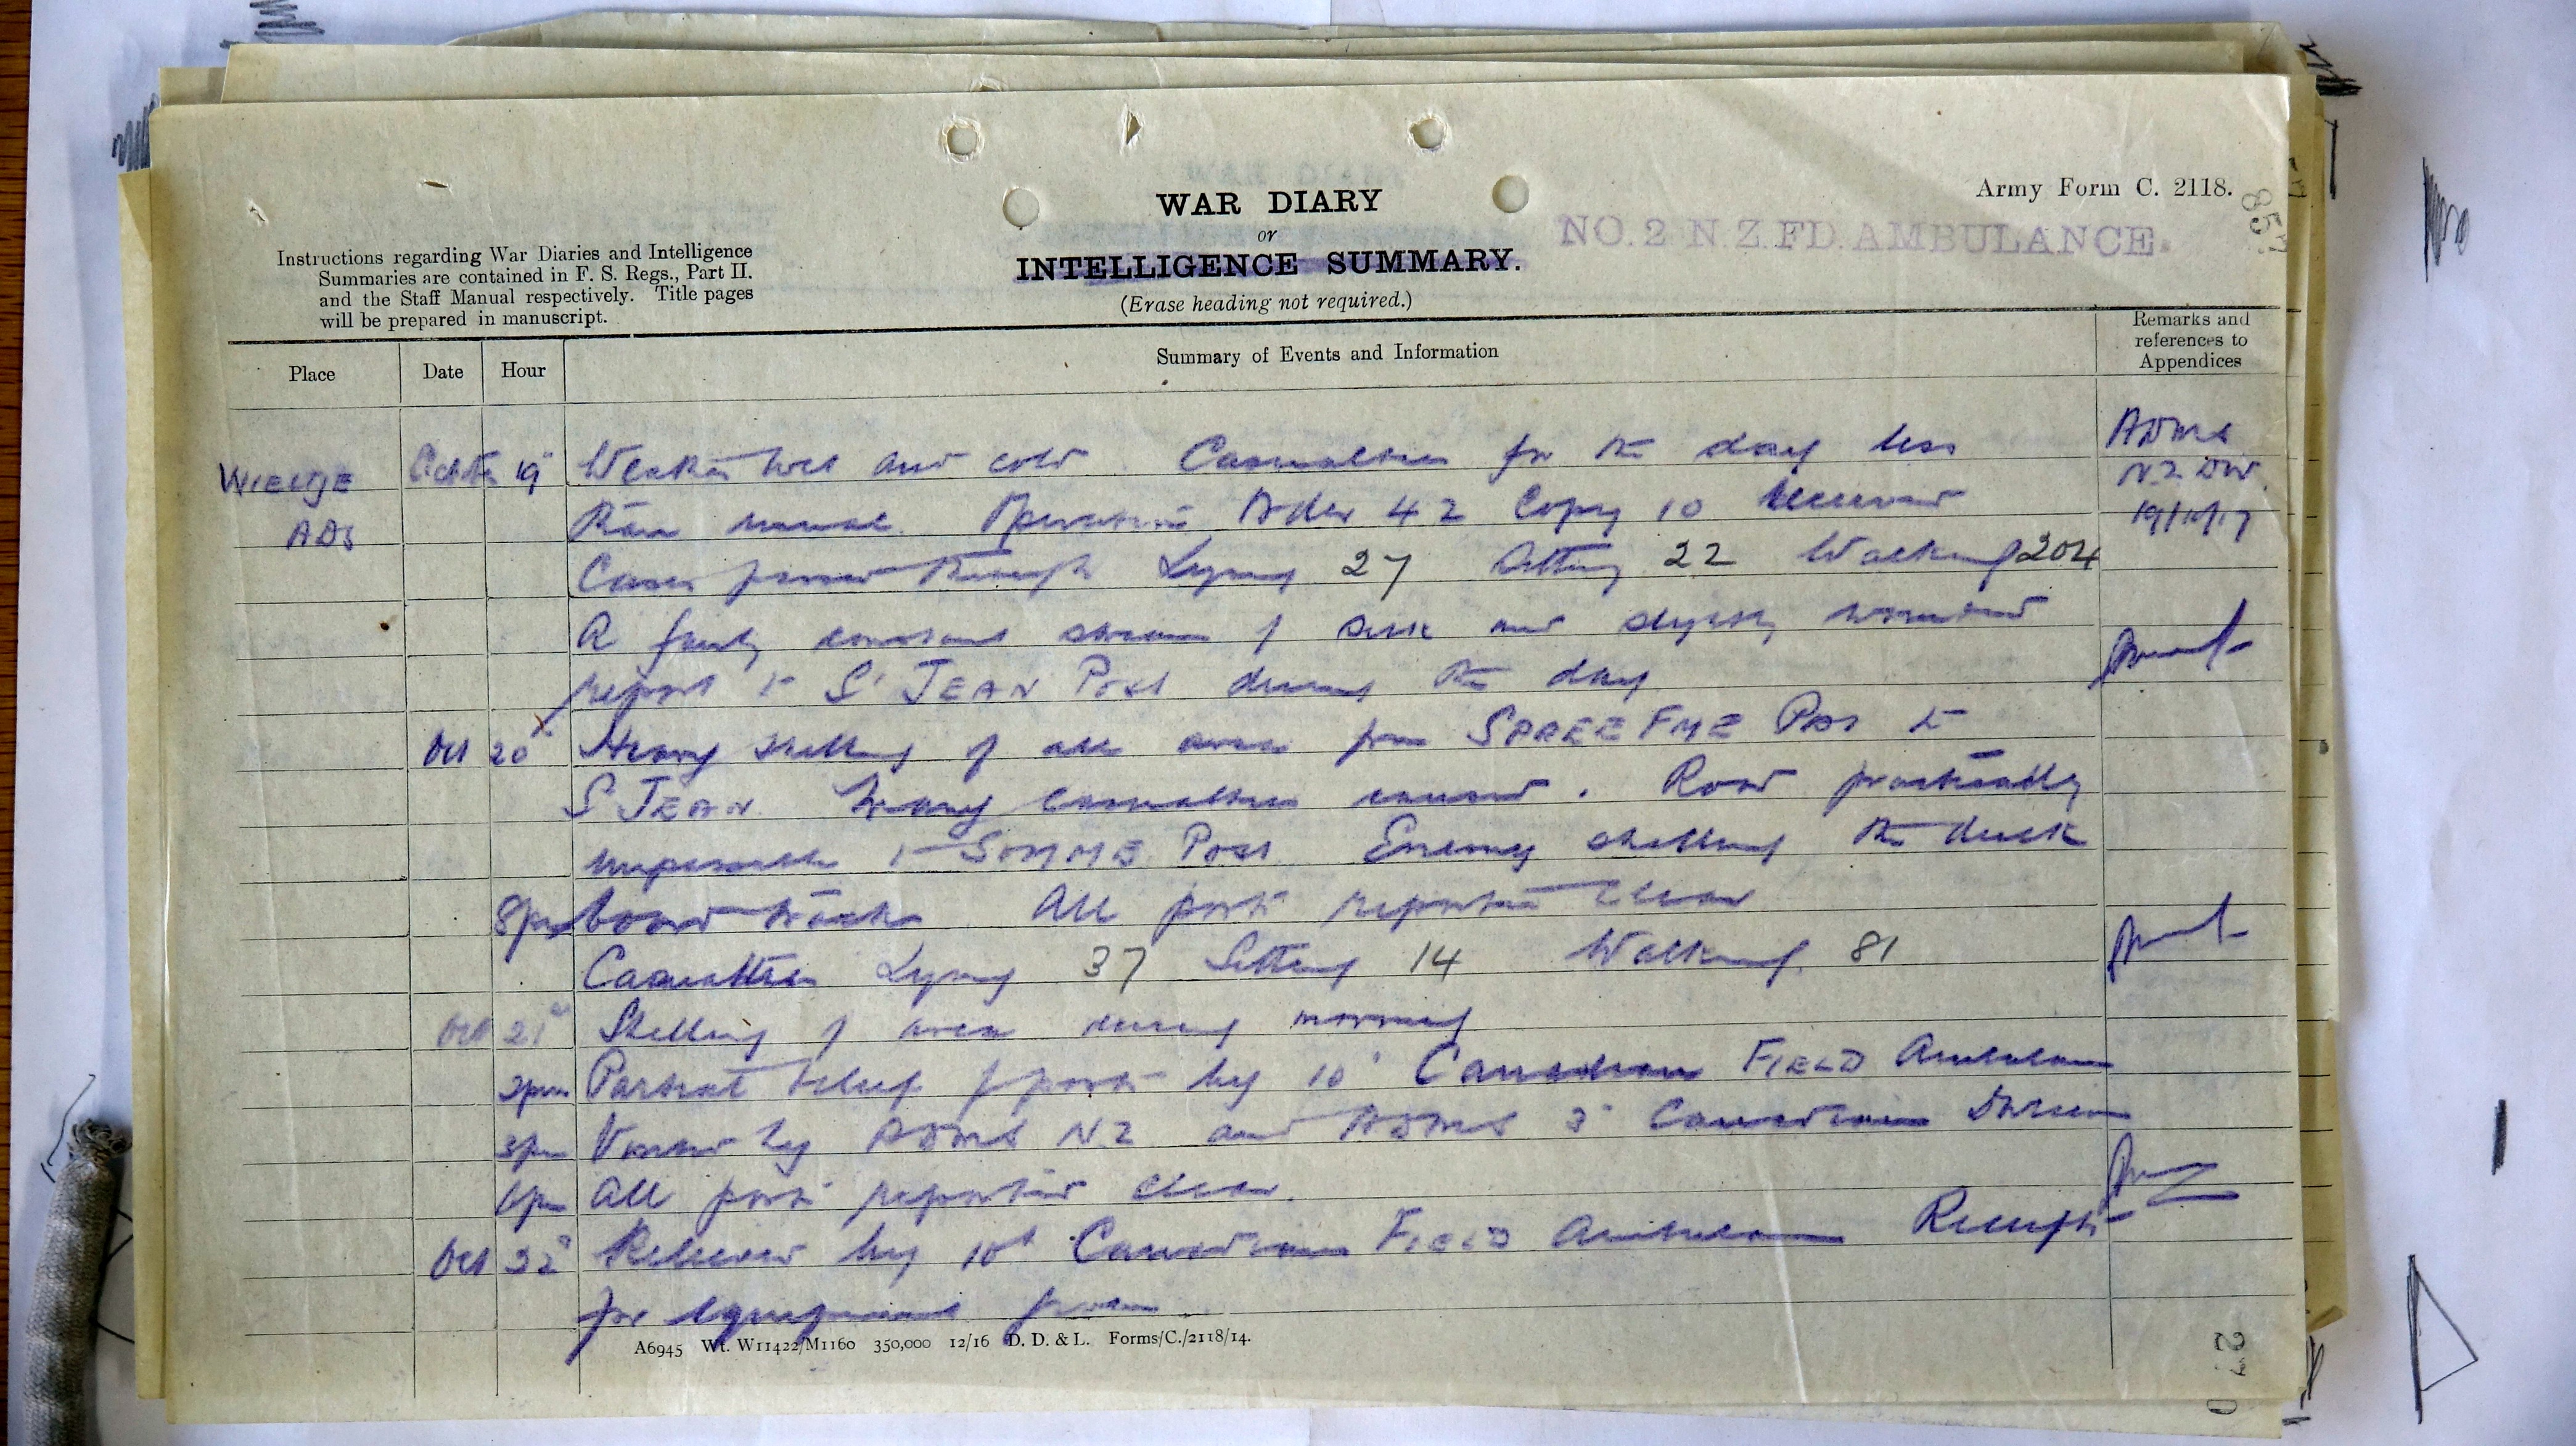 WAR DIARY
or
INTELLIGENCE SUMMARY.
(Erase heading not required.)
Army Form C. 2118.
NO. 2 N.Z. FD. AMBULANCE.
857
Instructions regarding War Diaries and Intelligence
Summaries are contained in F. S. Regs., Part II.
and the Staff Manual respectively. Title pages
will be prepared in manuscript.
Place
Date
Hour
Summary of Events and Information
Remarks and
references to
Appendices
WIELTJE
ADS
Octbr 19th Weather wet and cold. Casualties for the day less
than usual. Operation Order 42 Copy 10 received
ADMS
N.Z. Div.
19/10/17
Cases passed through Lying 27 Sitting 22 Walking 204
A fairly constant stream of sick and slightly wounded
report to St JEAN Post during the day
Oct 20th Heavy shelling of all areas from SPREE FME Post to
St JEAN. Many casualties caused. Road practically
impassable to SOMME Post. Enemy shelling the duck
8pm board tracks. All posts reported clear
Casualties Lying 37 Sitting 14 Walking 81
Oct 21st Shelling of area during morning
2pm Partial relief of posts by 10th Canadian FIELD Ambulance
3pm Visited by ADMS NZ and ADMS 3rd Canadian Division
6pm All posts reported clear.
Oct 22nd Relieved by 10th Canadian FIELD Ambulance Receipts
for equipment given
A6945 Wt. W11422/M1160 350,000 12/16 D. D. & L. Forms/C./2118/14.